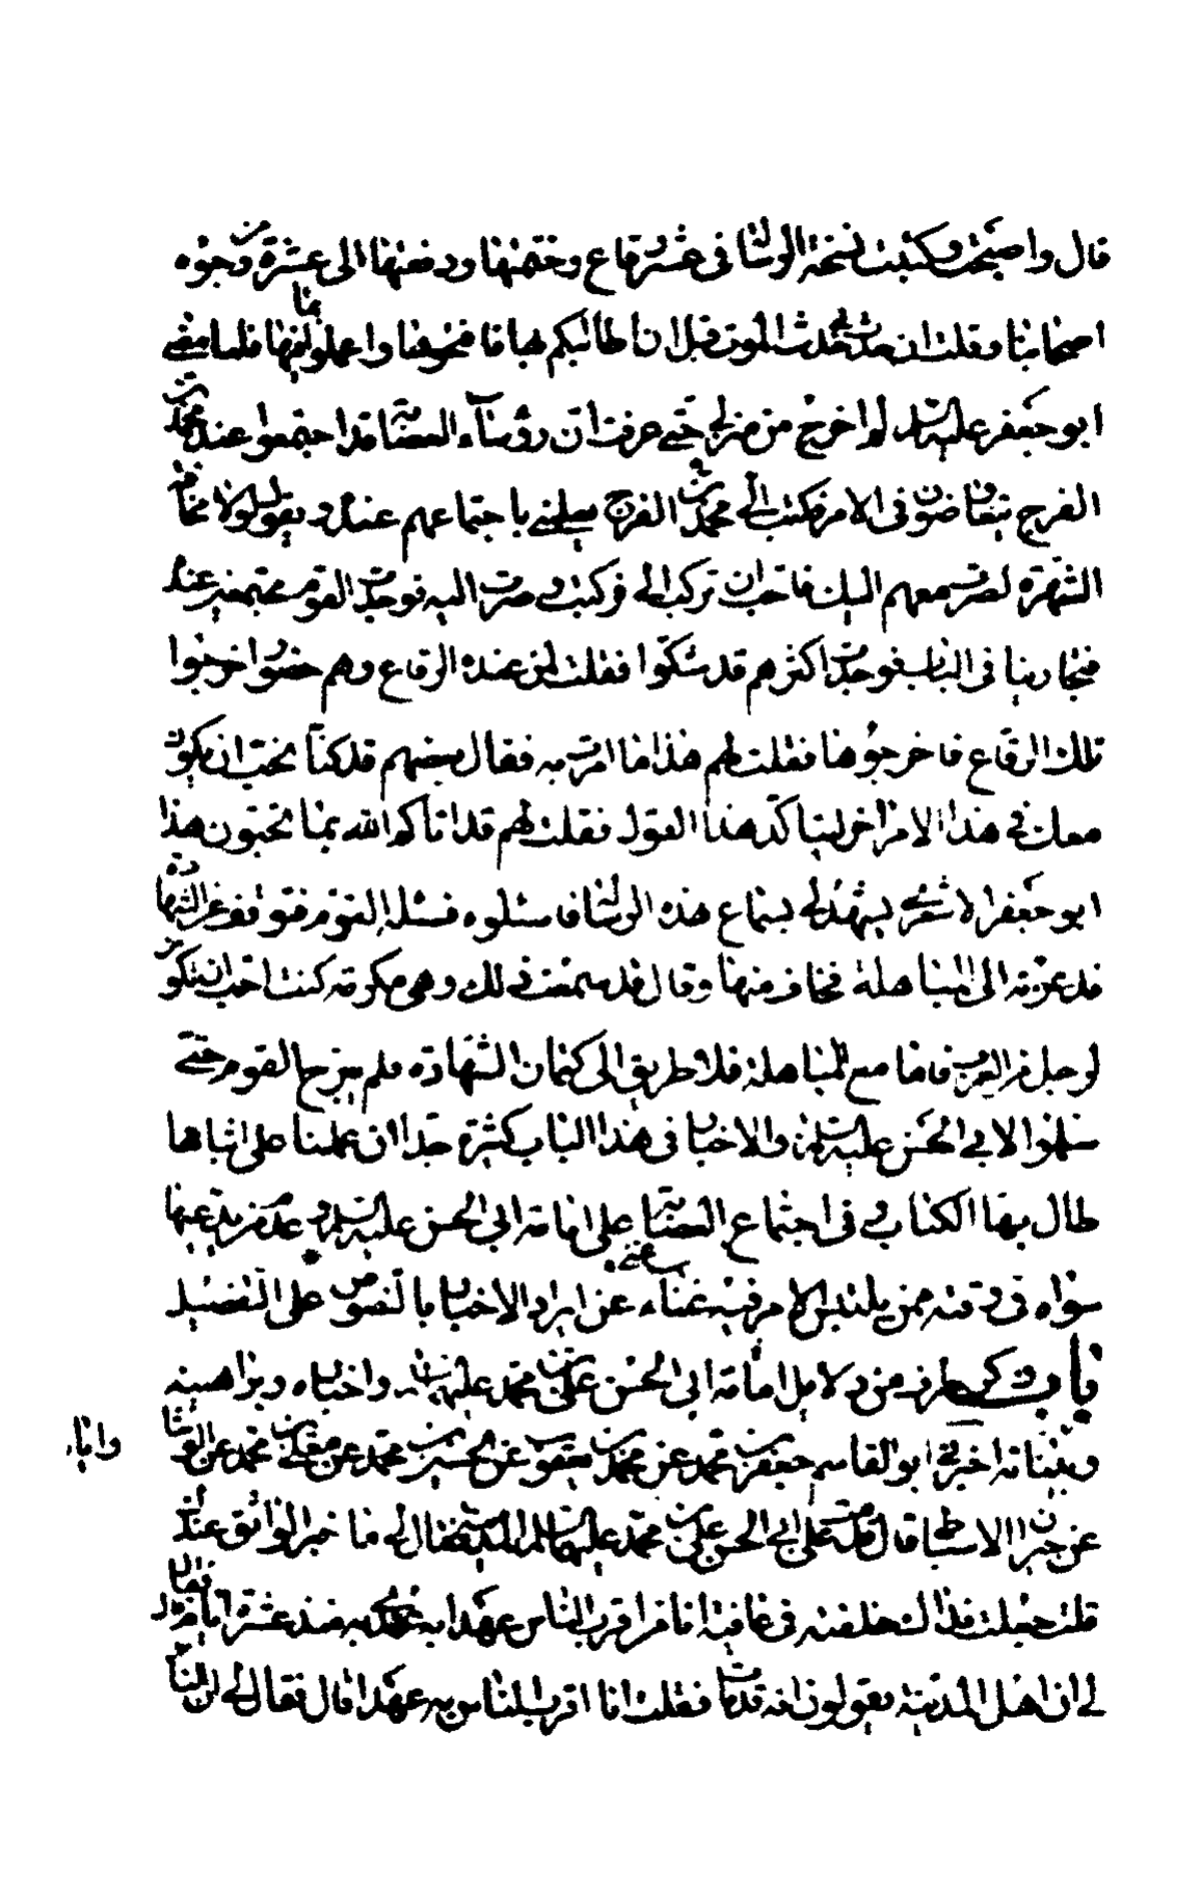 قال واصبحت وكتبت نسخة الرسالة فى عشر رقاع وختمتها ودفعتها الى عشرة من وجوه
اصحابنا وقلت ان حدث بى حدث الموت قبل ان اطالبكم بها فافتحوها واعملوا بما فيها فلما مضى
ابو جعفر عليه السلام لم اخرج من منزلى حتى عرفت ان رؤساء العصابة قد اجتمعوا عند محمد بن
الفرج يتفاوضون فى الامر فكتب الى محمد بن الفرج يعلمنى باجتماعهم عنده و يقول لولا مخافة
الشهرة لصرت معهم اليك فاحب ان تركب الى فركبت وصرت اليه فوجدت القوم مجتمعين عنده
فتجارينا فى الباب فوجدت اكثرهم قد شكوا فقلت لمن عنده الرقاع وهم حضور اخرجوا
تلك الرقاع فاخرجوها فقلت لهم هذا ما امرت به فقال بعضهم قد كنا نحب ان يكون
معك فى هذا الامر اخر ليتاكد هذا القول فقلت لهم قد اتاكم الله بما تحبون هذا
ابو جعفر الاشعرى يشهد لى بسماع هذه الرسالة فاسئلوه فسئله القوم فتوقف عن الشهادة
فدعوته الى المباهلة فخاف منها وقال قد سمعت ذلك وهى مكرمة كنت احب ان يكون
لرجل من العرب فاما مع المباهلة فلا طريق الى كتمان الشهادة فلم يبرح القوم حتى
سلموا لابى الحسن عليه السلام والاخبار فى هذا الباب كثيرة جدا ان عملنا على اثباتها
طال بها الكتاب و فى اجتماع العصابة على امامة ابى الحسن عليه السلام وعدم من يدعيها
سواه فى وقته ممن يلتبس الامر فيه غناء عن ايراد الاخبار بالنصوص على التفصيل
باب ذكر طرف من دلائل امامة ابى الحسن على بن محمد عليهما السلام واخباره وبراهينه
وبيناته اخبرنى ابو القاسم جعفر بن محمد عن محمد بن يعقوب عن الحسين بن محمد عن معلى بن محمد عن الوشا
عن خيران الاسباطى قال قدمت على ابى الحسن على بن محمد عليهما السلام المدينة فقال لى ما خبر الواثق عندك
قلت جعلت فداك خلفته فى عافية انا من اقرب الناس عهدا به عهدى به منذ عشرة ايام قال فقال
لى ان اهل المدينة يقولون انه قد مات فقلت انا اقرب الناس به عهدا قال فقال لى ان الناس